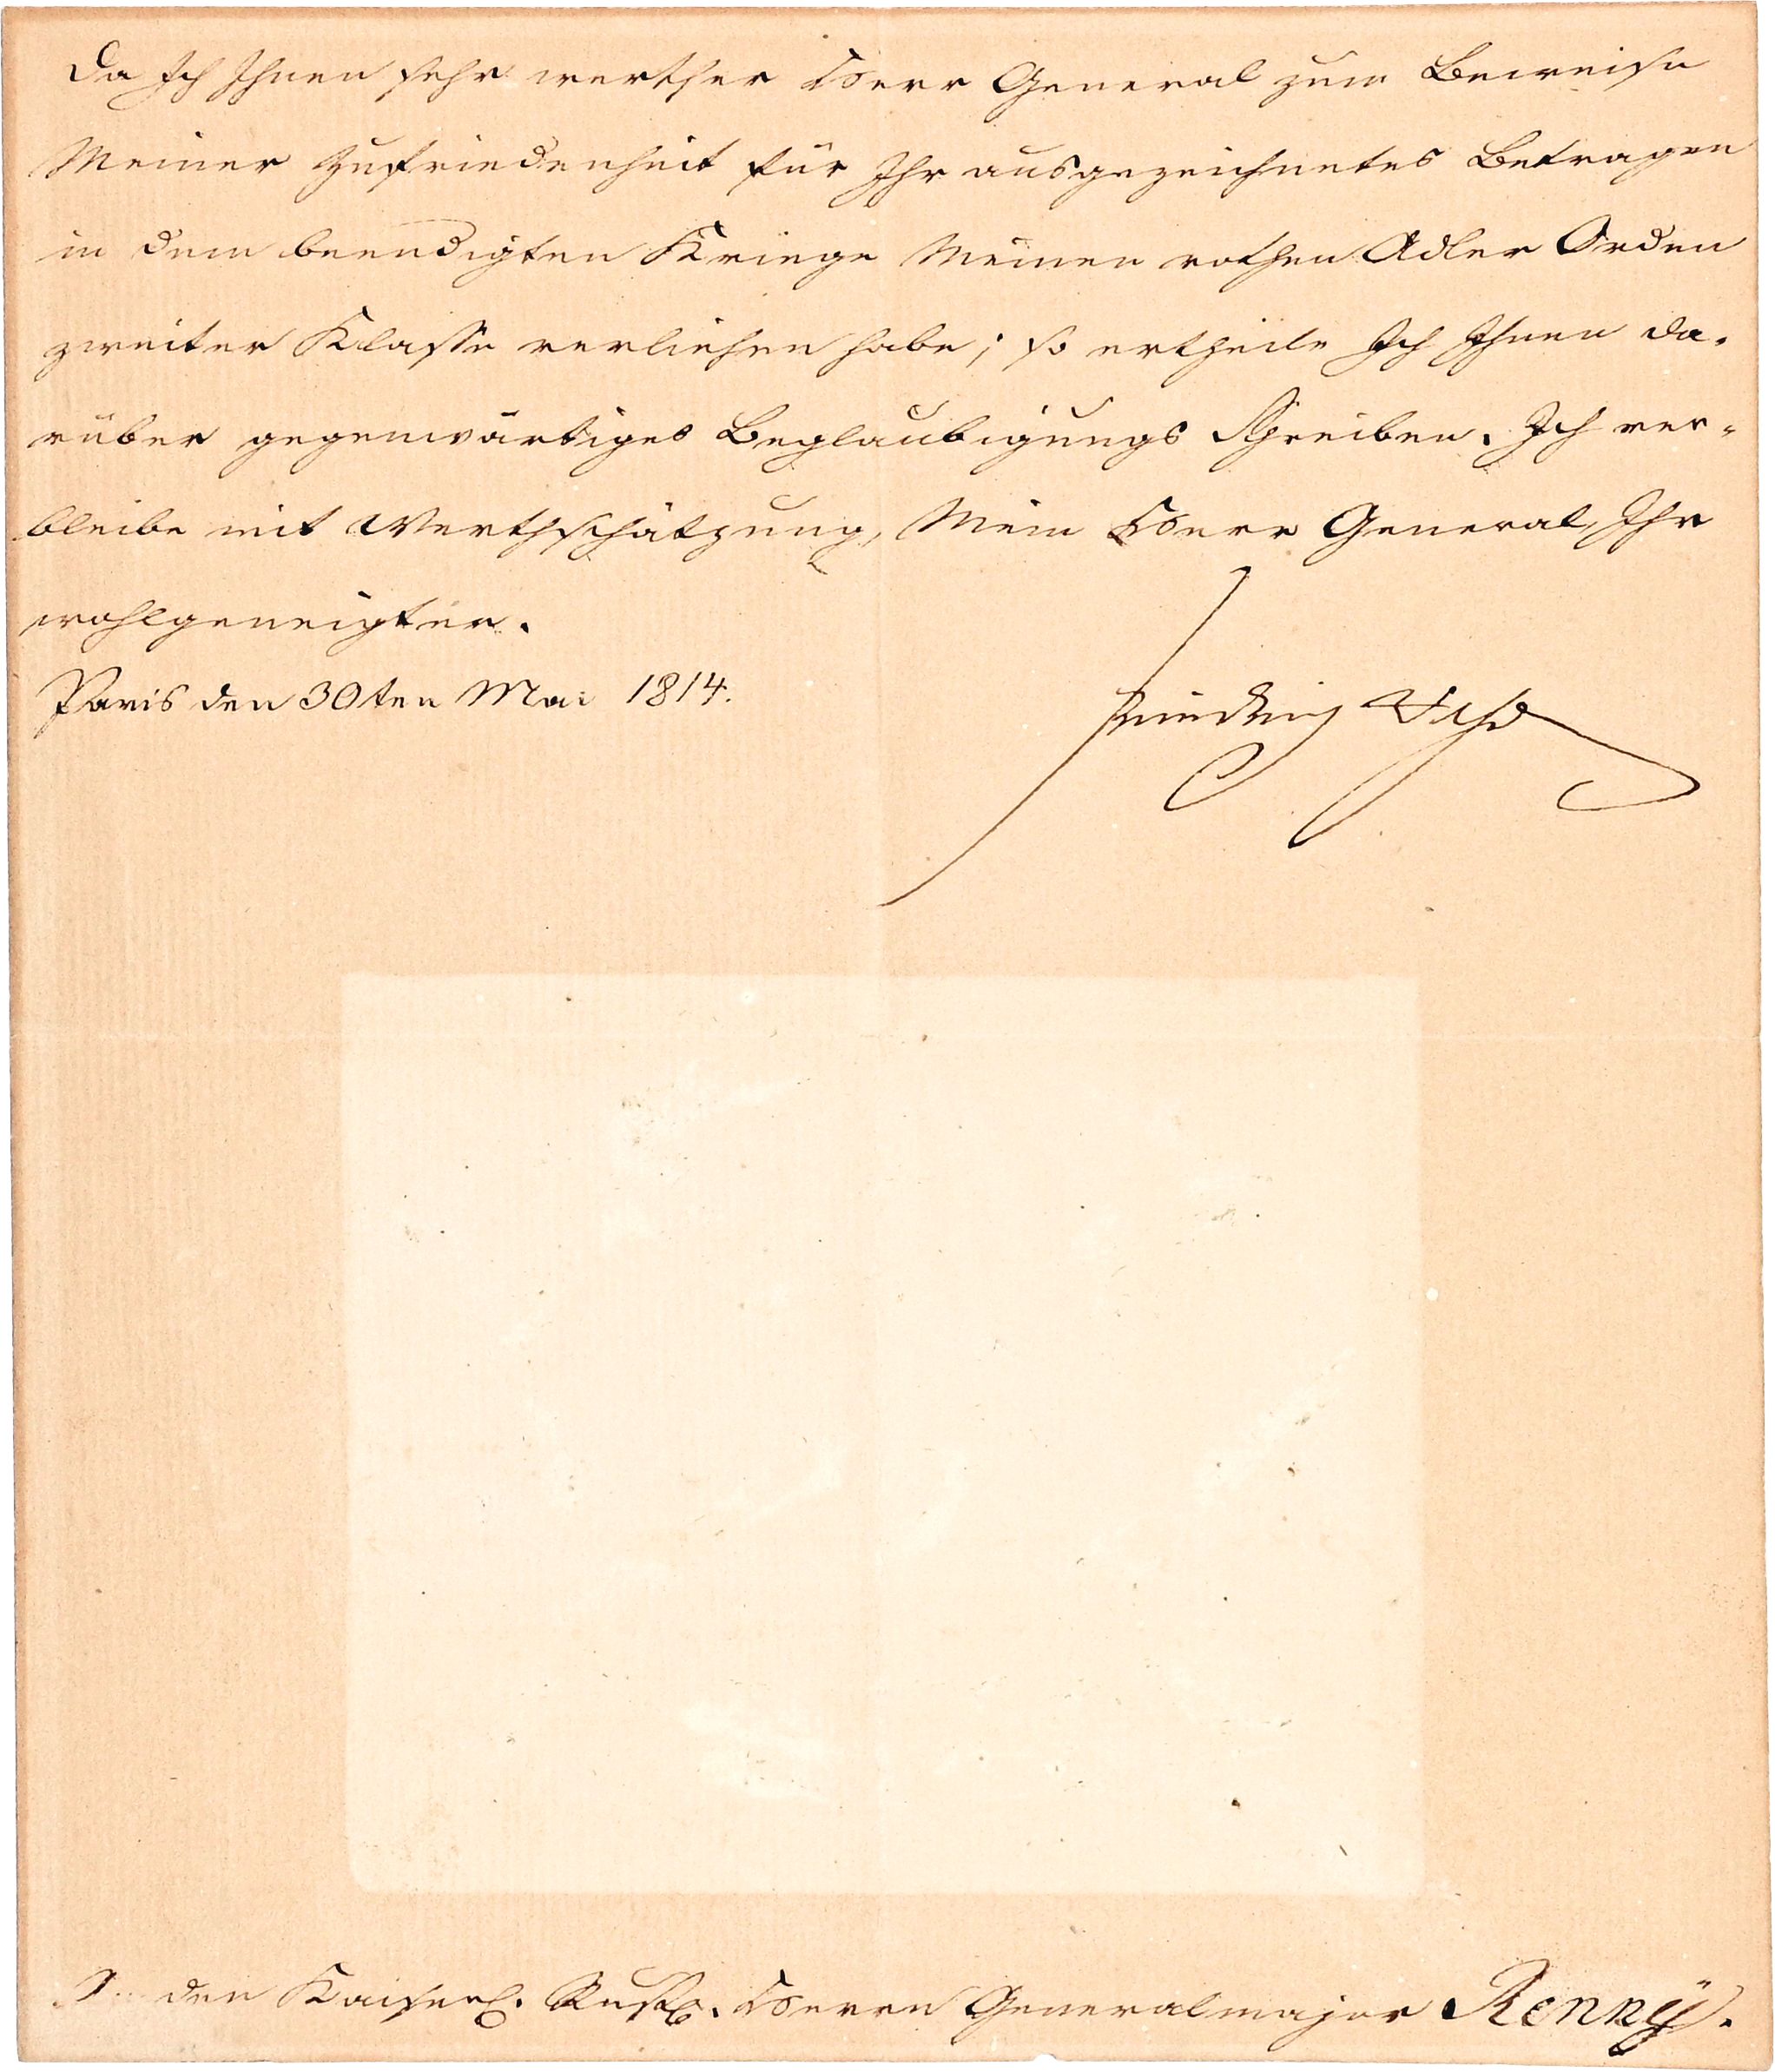 Da Ich Ihnen sehr werther Herr General zum Beweise
Meiner Zufriedenheit für Ihr ausgezeichnetes Betragen
in dem beendigten Kriege Meinen rothen Adler Orden
zweiter Klasse verliehen habe; so ertheile Ich Ihnen da-
rüber gegenwärtiges Beglaubigungs Schreiben. Ich ver-
bleibe mit Werthschätzung, Mein Herr General, Ihr
wohlgeneigter.
Paris den 30ten Mai 1814.
Friedrich Wilh
An den Kaiserl. Russ. Herrn Generalmajor Rennÿ.